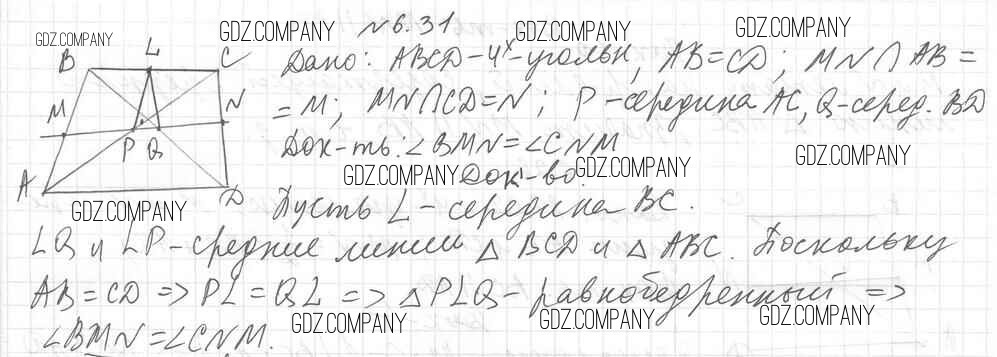 №6.31
GDZ.COMPANY GDZ.COMPANY GDZ.COMPANY GDZ.COMPANY
B L C
Дано: ABCD-4х-угольн, AB=CD; MN∩AB=
M N
=M; MN∩CD=N; P-середина AC, Q-серед. BD
P Q
Док-ть: ∠BMN=∠CNM
GDZ.COMPANY
GDZ.COMPANY Док-во. GDZ.COMPANY
A D
GDZ.COMPANY
Пусть L-середина BC.
LQ и LP-средние линии △ BCD и △ ABC. Поскольку
AB=CD => PL=QL => △PLQ-равнобедренный =>
GDZ.COMPANY GDZ.COMPANY GDZ.COMPANY
∠BMN=∠CNM.